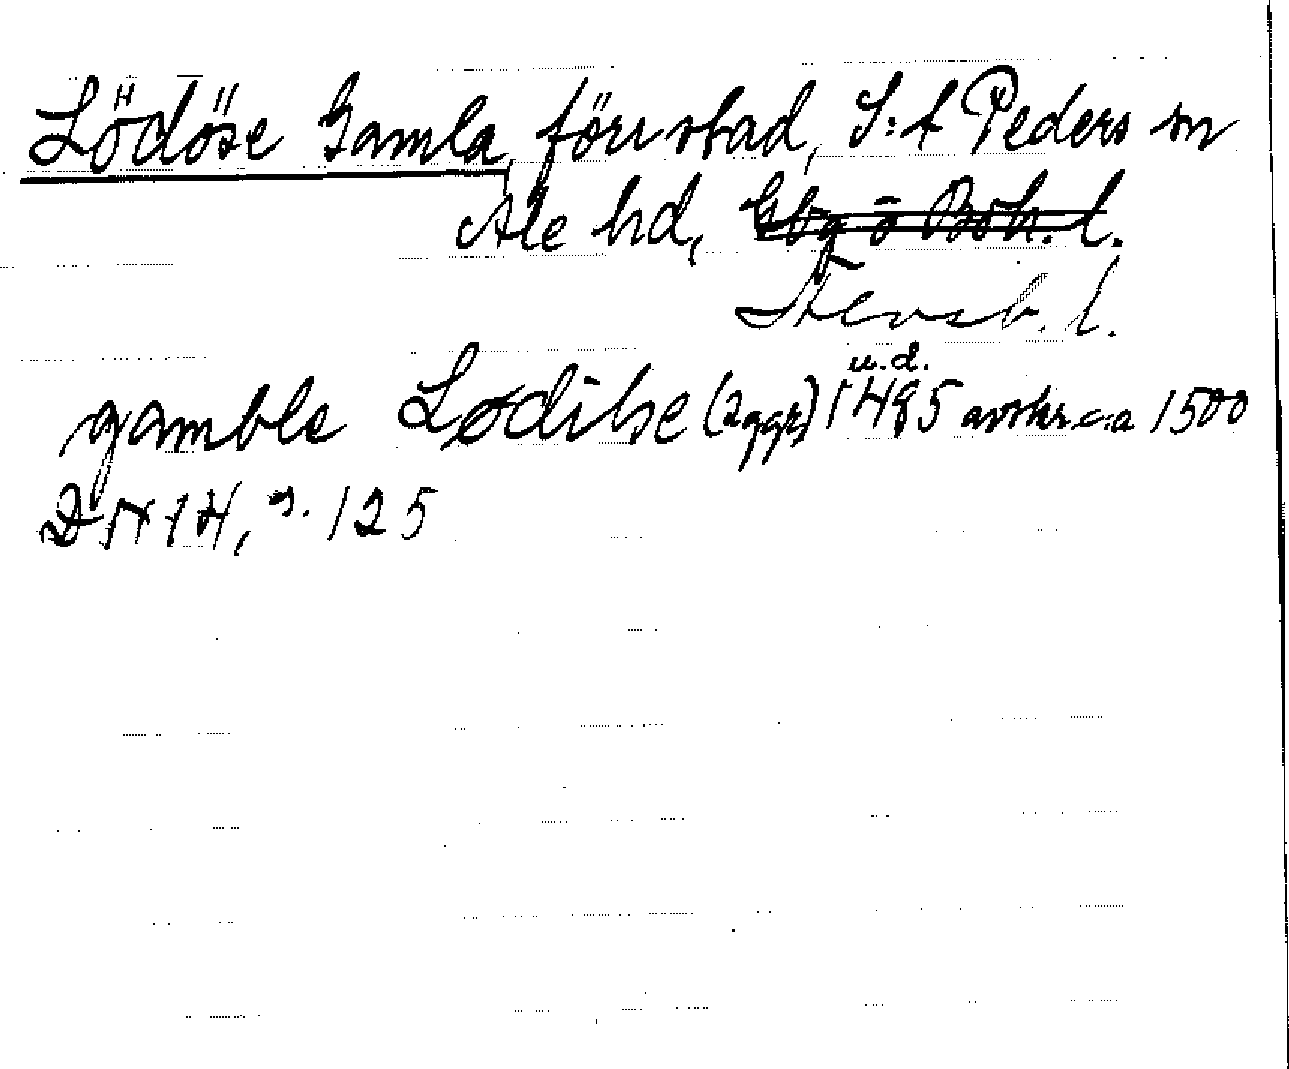 Lödöse Gamla, förr stad, S:t Peders sn
Ale hd, Gbg o Boh. l.
Älvsb. l.
u.d.
gamble Lødilse (2 ggr) 1485 avskr. ca 1500
DN 14, s. 125